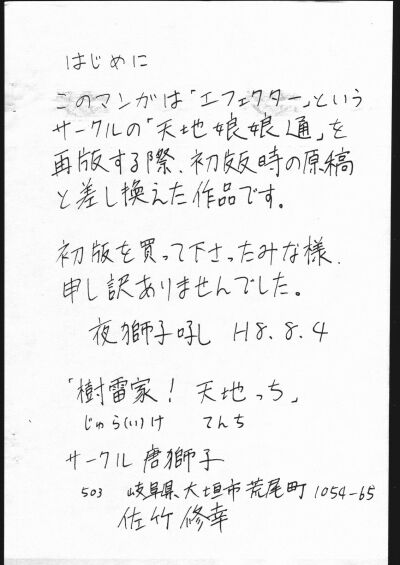 はじめに
このマンガは「エフェクター」という
サークルの「天地娘娘通」を
再版する際、初版時の原稿
と差し換えた作品です。
初版を買って下さったみな様、
申し訳ありませんでした。
夜獅子吼し H8.8.4
「樹雷家！ 天地っち」
じゅら(い)け てんち
サークル 唐獅子
503 岐阜県大垣市荒尾町1054-65
佐竹修幸